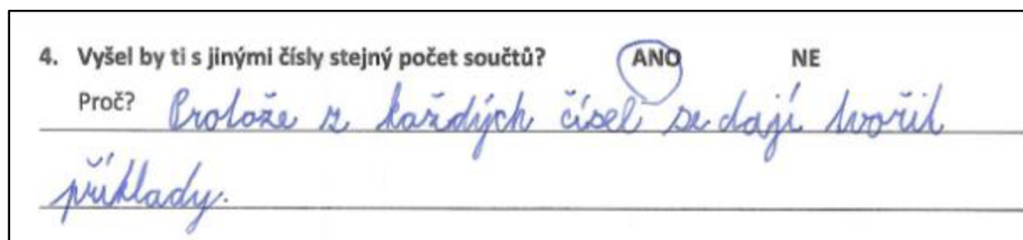 4. Vyšel by ti s jinými čísly stejný počet součtů? ANO NE
Proč? Protože z každých čísel se dají tvořit
příklady.